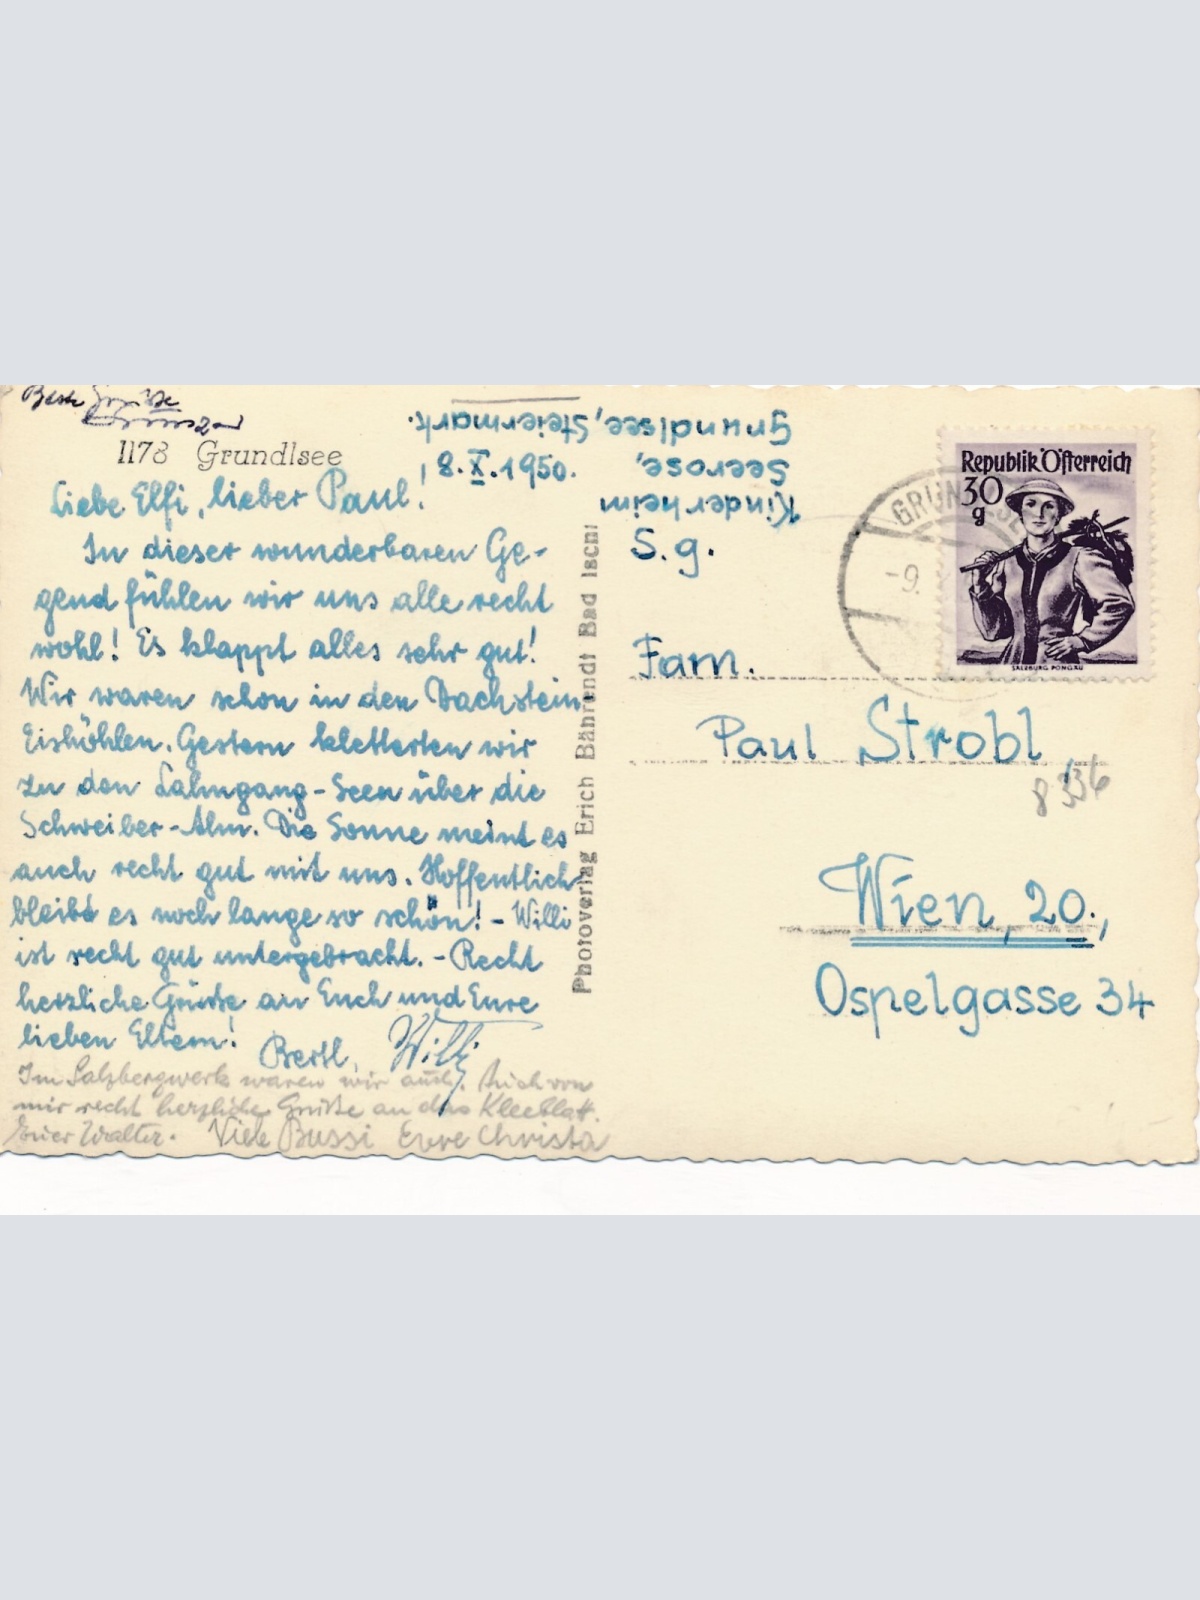 Beste Grüße
1178 Grundlsee
8. X. 1950.
Liebe Elfi, lieber Paul!
In dieser wunderbaren Ge-
gend fühlen wir uns alle recht
wohl! Es klappt alles sehr gut!
Wir waren schon in den Dachstein
Eishöhlen. Gestern kletterten wir
zu den Lahngang-Seen über die
Schweiber-Alm. Die Sonne meint es
auch recht gut mit uns. Hoffentlich
bleibt es noch lange so schön! - Willi
ist recht gut untergebracht. - Recht
herzliche Grüße an Euch und Eure
lieben Eltern! Bertl, Willi
Im Salzbergwerk waren wir auch. Auch von
mir recht herzliche Grüße an das Kleeblatt.
Euer Walter. Viele Bussi Eure Christa
Photoverlag Erich Bährendt Bad Ischl
Kinderheim
Seerose,
Grundlsee, Steiermark.
S. g.
Fam.
Paul Strobl
8336
Wien, 20.,
Ospelgasse 34
Republik Österreich
30
g
SALZBURG PONGAU
-9.